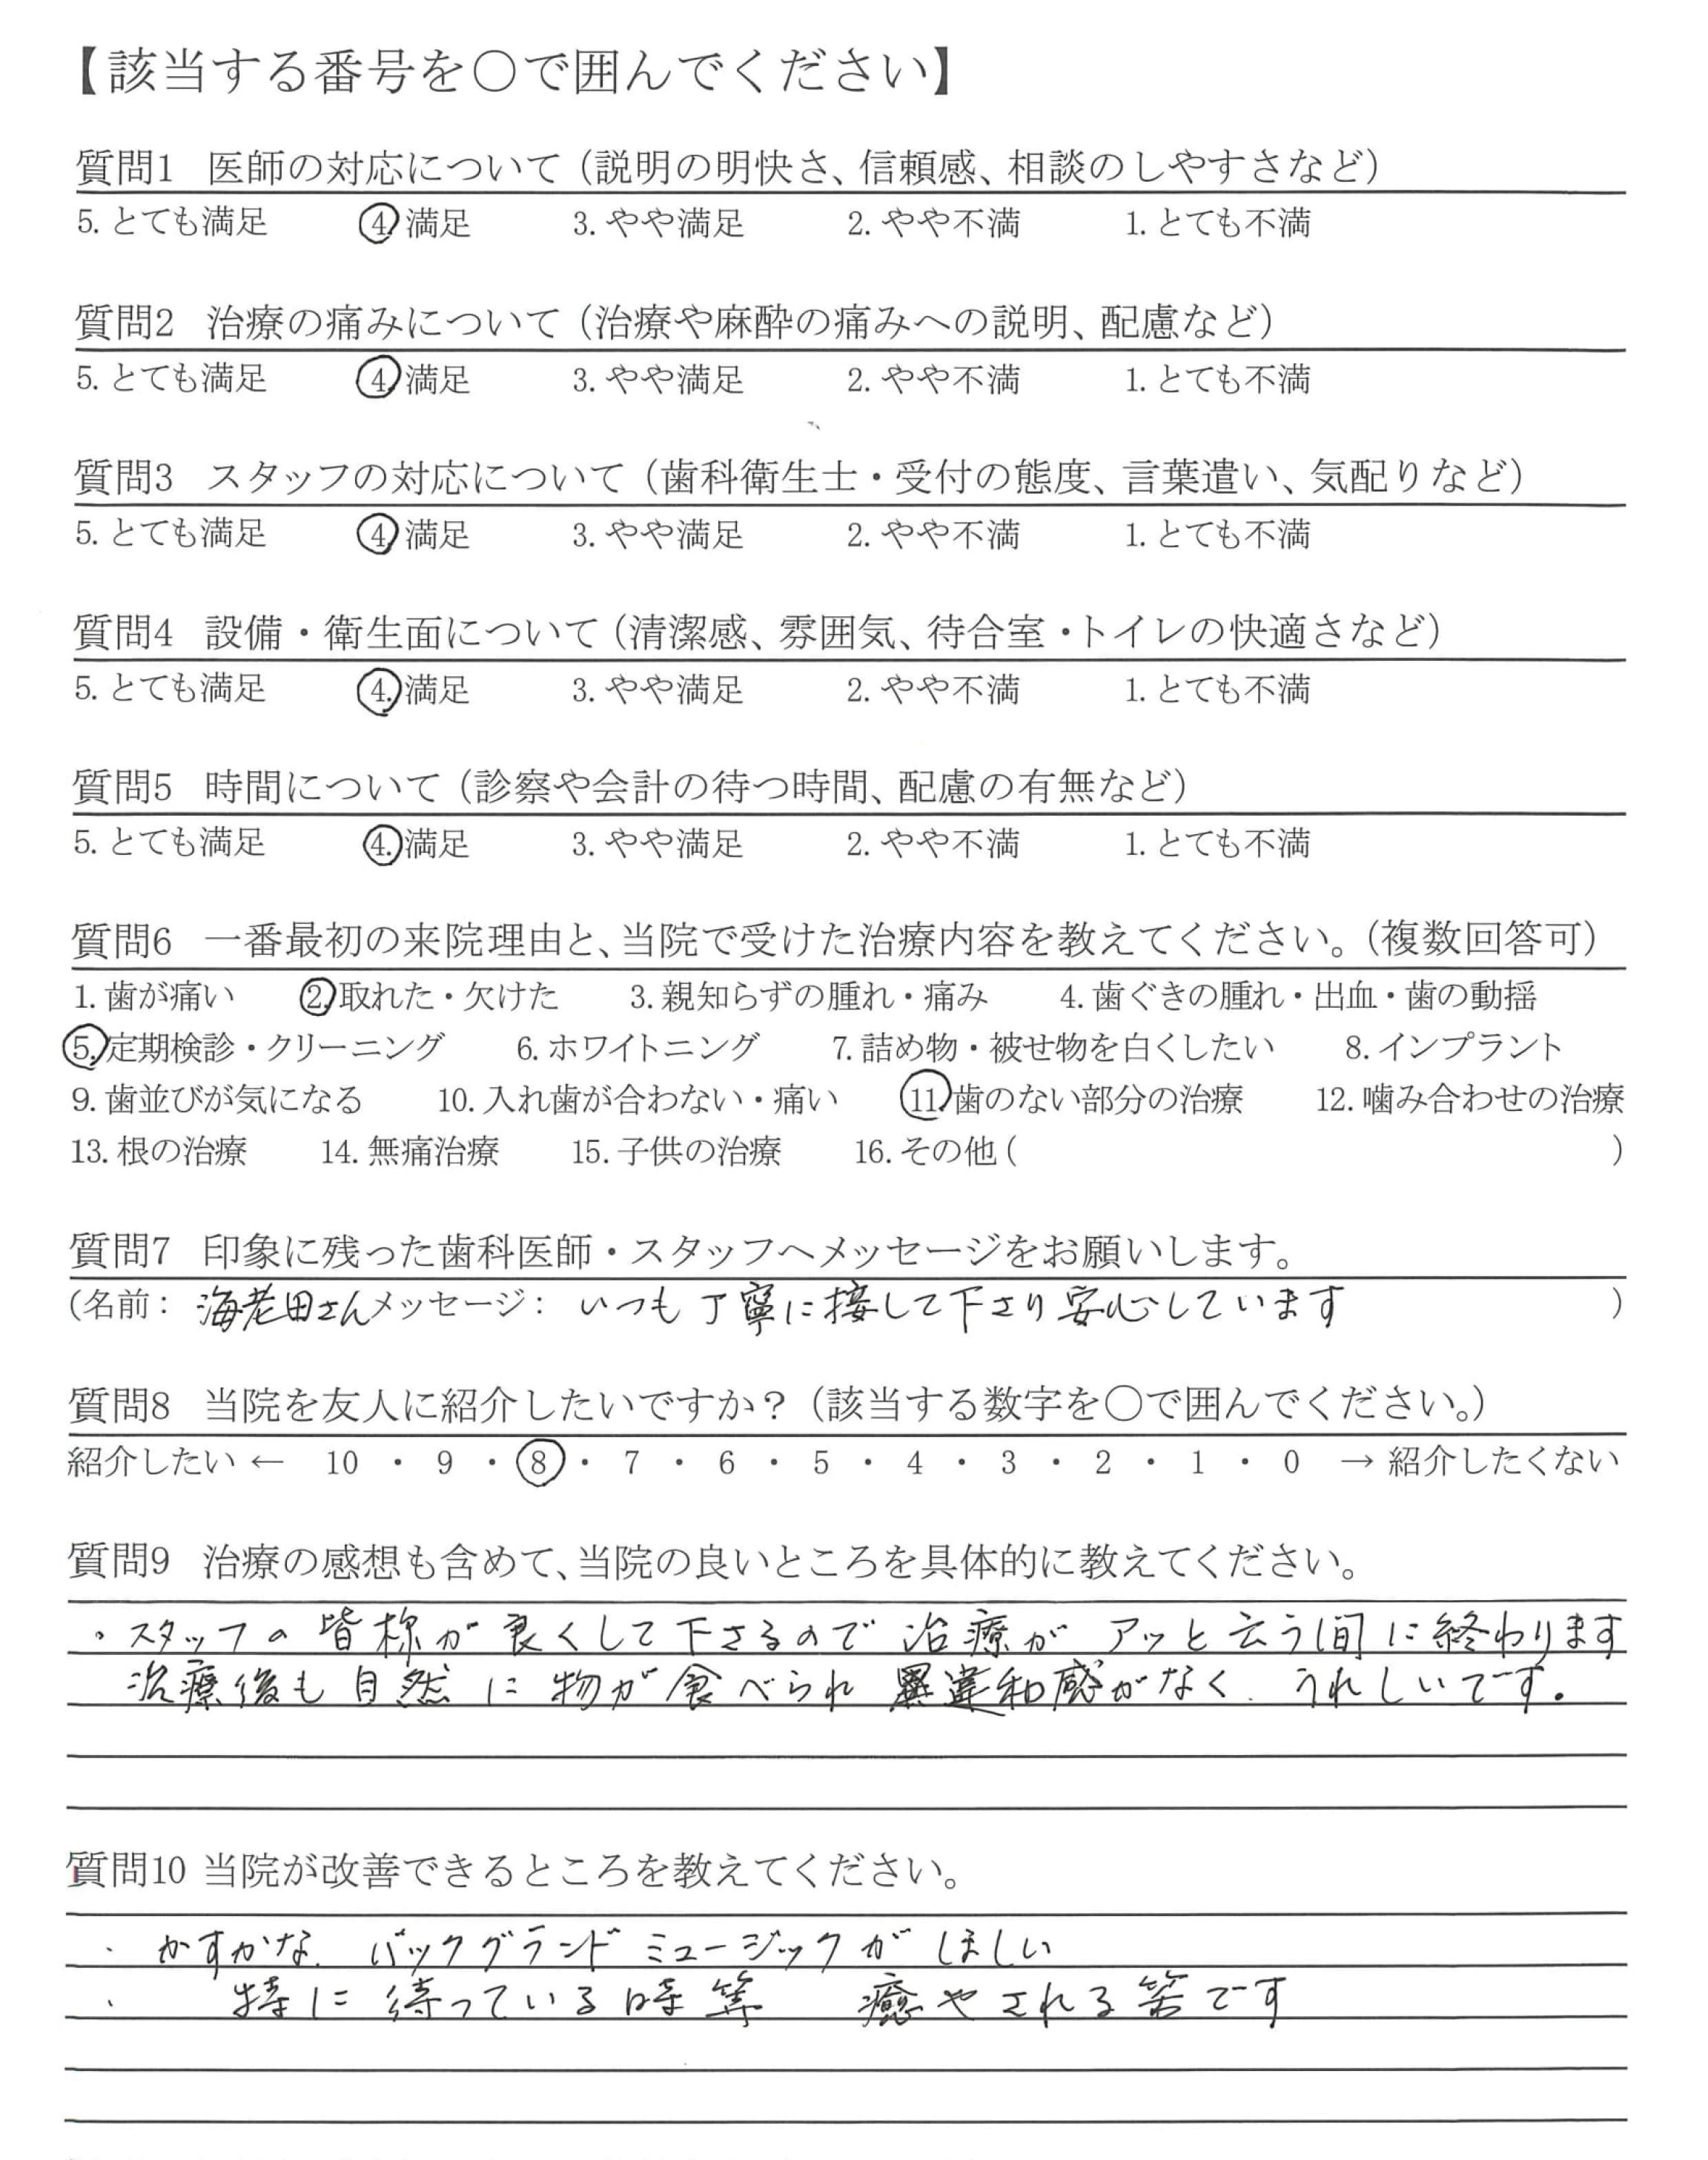 【該当する番号を○で囲んでください】
質問1 医師の対応について（説明の明快さ、信頼感、相談のしやすさなど）
5. とても満足 4. 満足 3. やや満足 2. やや不満 1. とても不満
質問2 治療の痛みについて（治療や麻酔の痛みへの説明、配慮など）
5. とても満足 4. 満足 3. やや満足 2. やや不満 1. とても不満
質問3 スタッフの対応について（歯科衛生士・受付の態度、言葉遣い、気配りなど）
5. とても満足 4. 満足 3. やや満足 2. やや不満 1. とても不満
質問4 設備・衛生面について（清潔感、雰囲気、待合室・トイレの快適さなど）
5. とても満足 4. 満足 3. やや満足 2. やや不満 1. とても不満
質問5 時間について（診察や会計の待つ時間、配慮の有無など）
5. とても満足 4. 満足 3. やや満足 2. やや不満 1. とても不満
質問6 一番最初の来院理由と、当院で受けた治療内容を教えてください。（複数回答可）
1. 歯が痛い 2. 取れた・欠けた 3. 親知らずの腫れ・痛み 4. 歯ぐきの腫れ・出血・歯の動揺
5. 定期検診・クリーニング 6. ホワイトニング 7. 詰め物・被せ物を白くしたい 8. インプラント
9. 歯並びが気になる 10. 入れ歯が合わない・痛い 11. 歯のない部分の治療 12. 噛み合わせの治療
13. 根の治療 14. 無痛治療 15. 子供の治療 16. その他（ ）
質問7 印象に残った歯科医師・スタッフへメッセージをお願いします。
（名前： 海老田さん メッセージ： いつも丁寧に接して下さり安心しています ）
質問8 当院を友人に紹介したいですか？（該当する数字を○で囲んでください。）
紹介したい ← 10 ・ 9 ・ 8 ・ 7 ・ 6 ・ 5 ・ 4 ・ 3 ・ 2 ・ 1 ・ 0 → 紹介したくない
質問9 治療の感想も含めて、当院の良いところを具体的に教えてください。
・スタッフの皆様が良くして下さるので治療がアッと云う間に終わります
治療後も自然に物が食べられ 違和感がなく、うれしいです。
質問10 当院が改善できるところを教えてください。
・かすかな、バックグランドミュージックがほしい
・特に待っている時等 癒やされる筈です